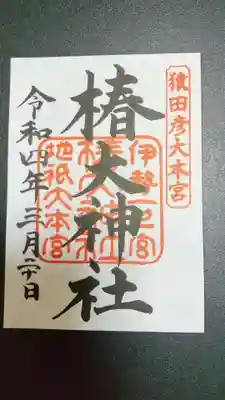 猿田彦大本宮
椿大神社
伊勢一之宮
椿大神社
地祇大本宮
令和四年三月二十日